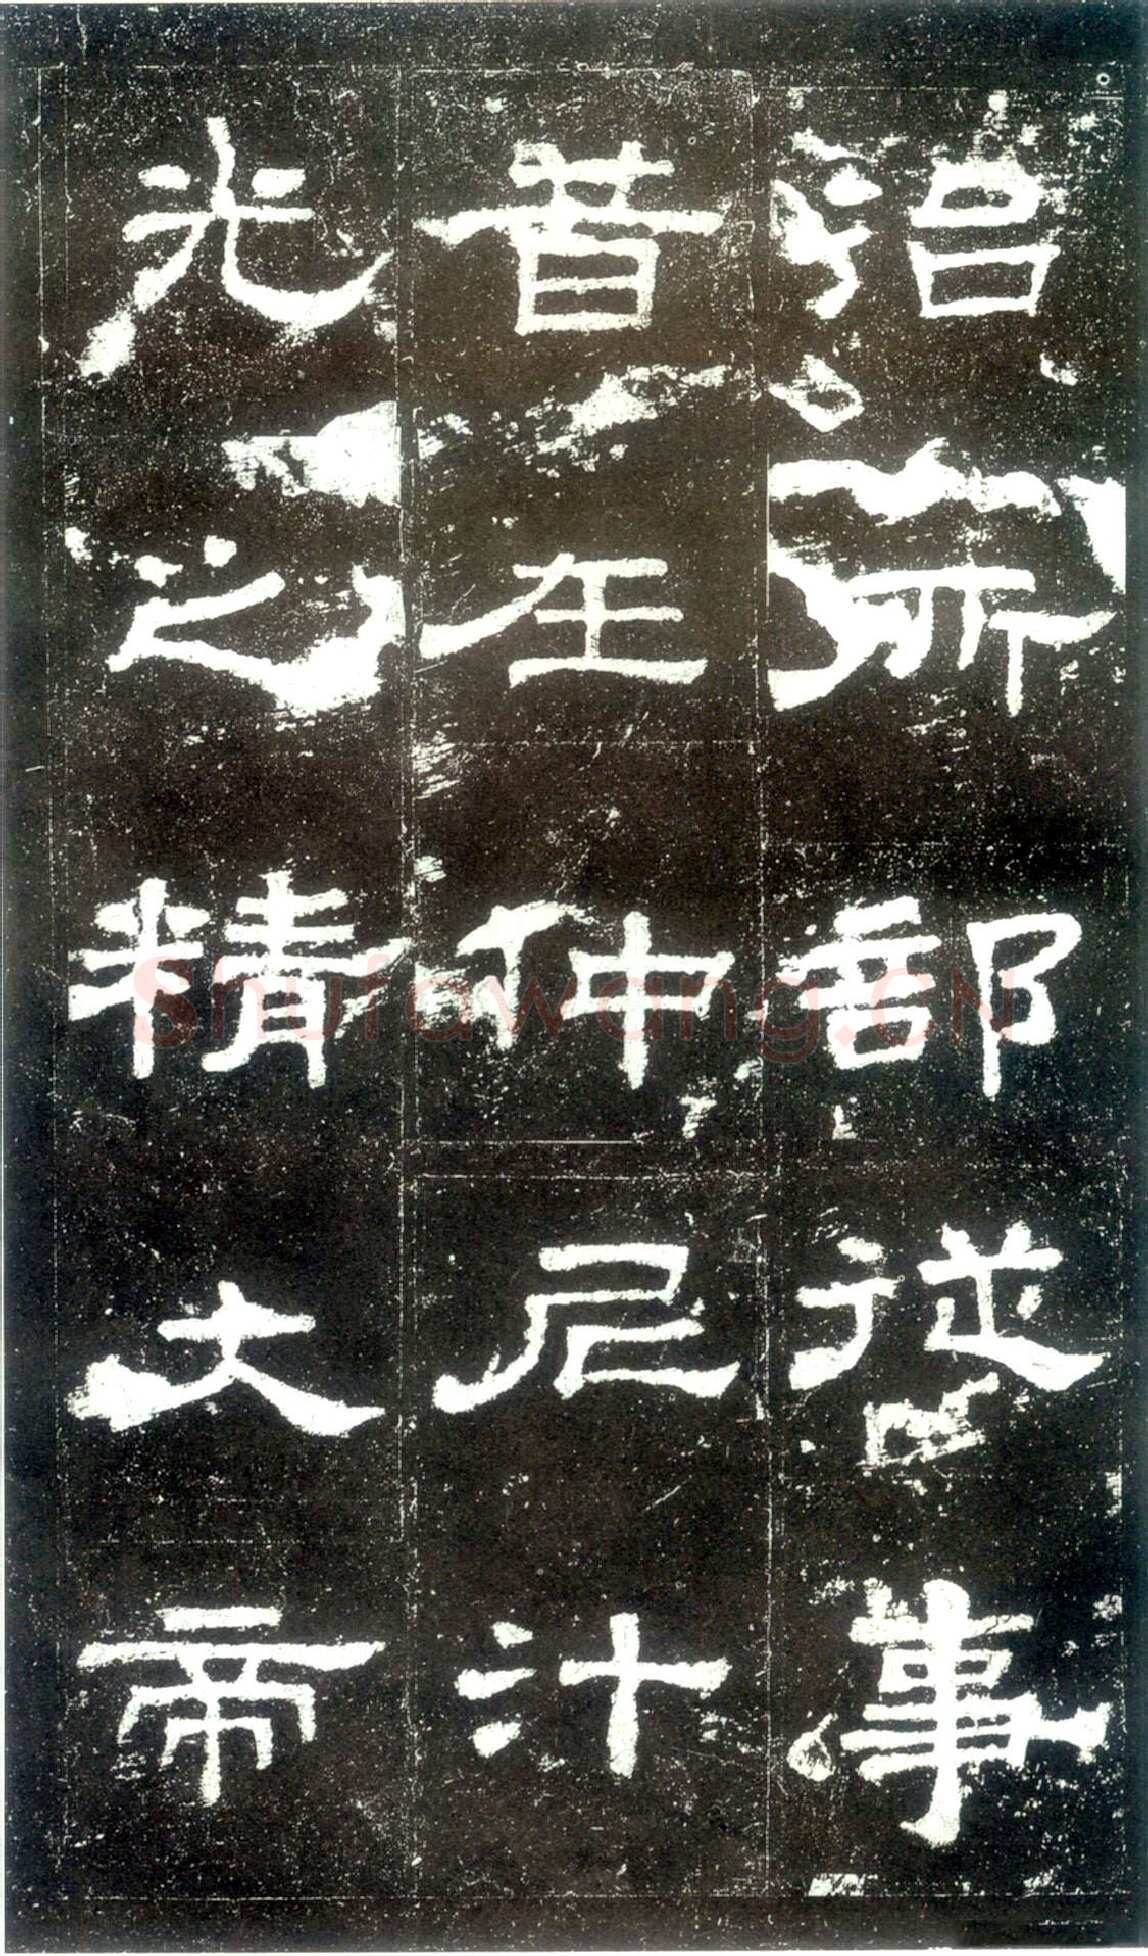 治所部從事
昔在仲尼汁
光之精大帝
Shufawang.CN